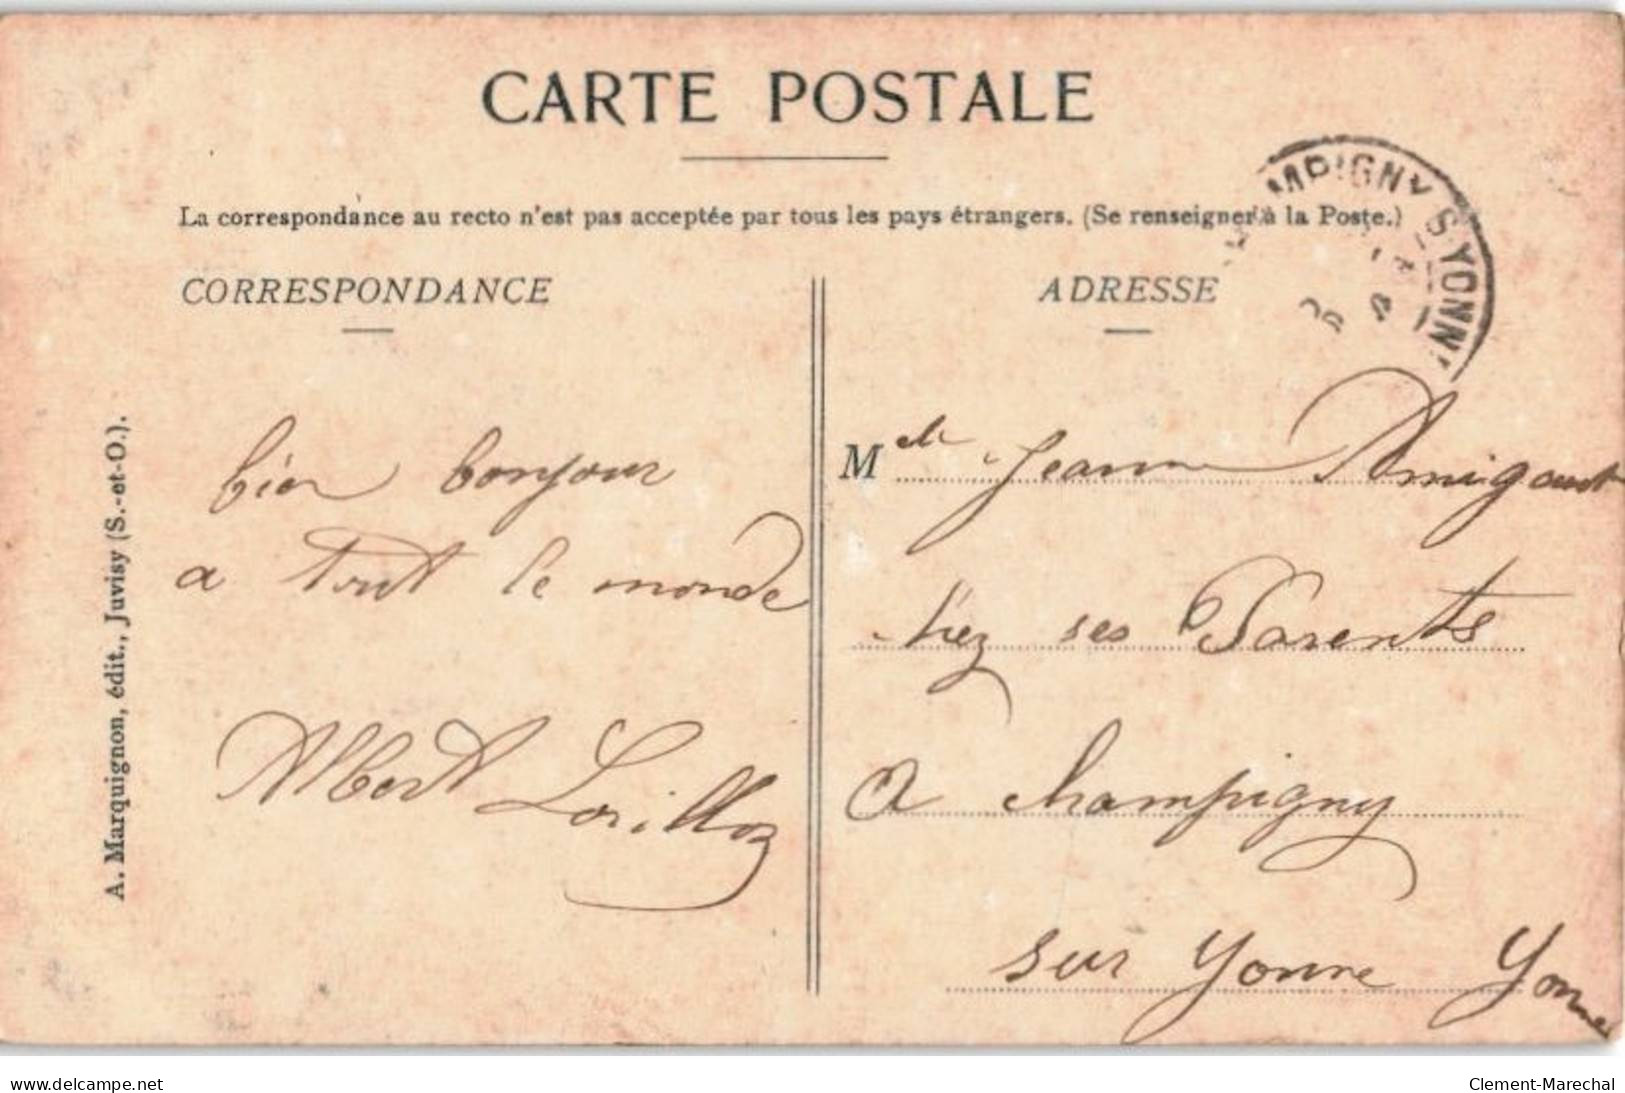 CARTE POSTALE
La correspondance au recto n'est pas acceptée par tous les pays étrangers. (Se renseigner à la Poste.)
CORRESPONDANCE
bien bonjour
a tout le monde
Albert
A. Marquignon, édit., Juvisy (S.-et-O.).
MPIGNY S YONN
ADRESSE
Melle Jeanne Amigaut
chez ses Parents
a champigny
sur Yonne Yonne
delcampe.net
Clement-Marechal